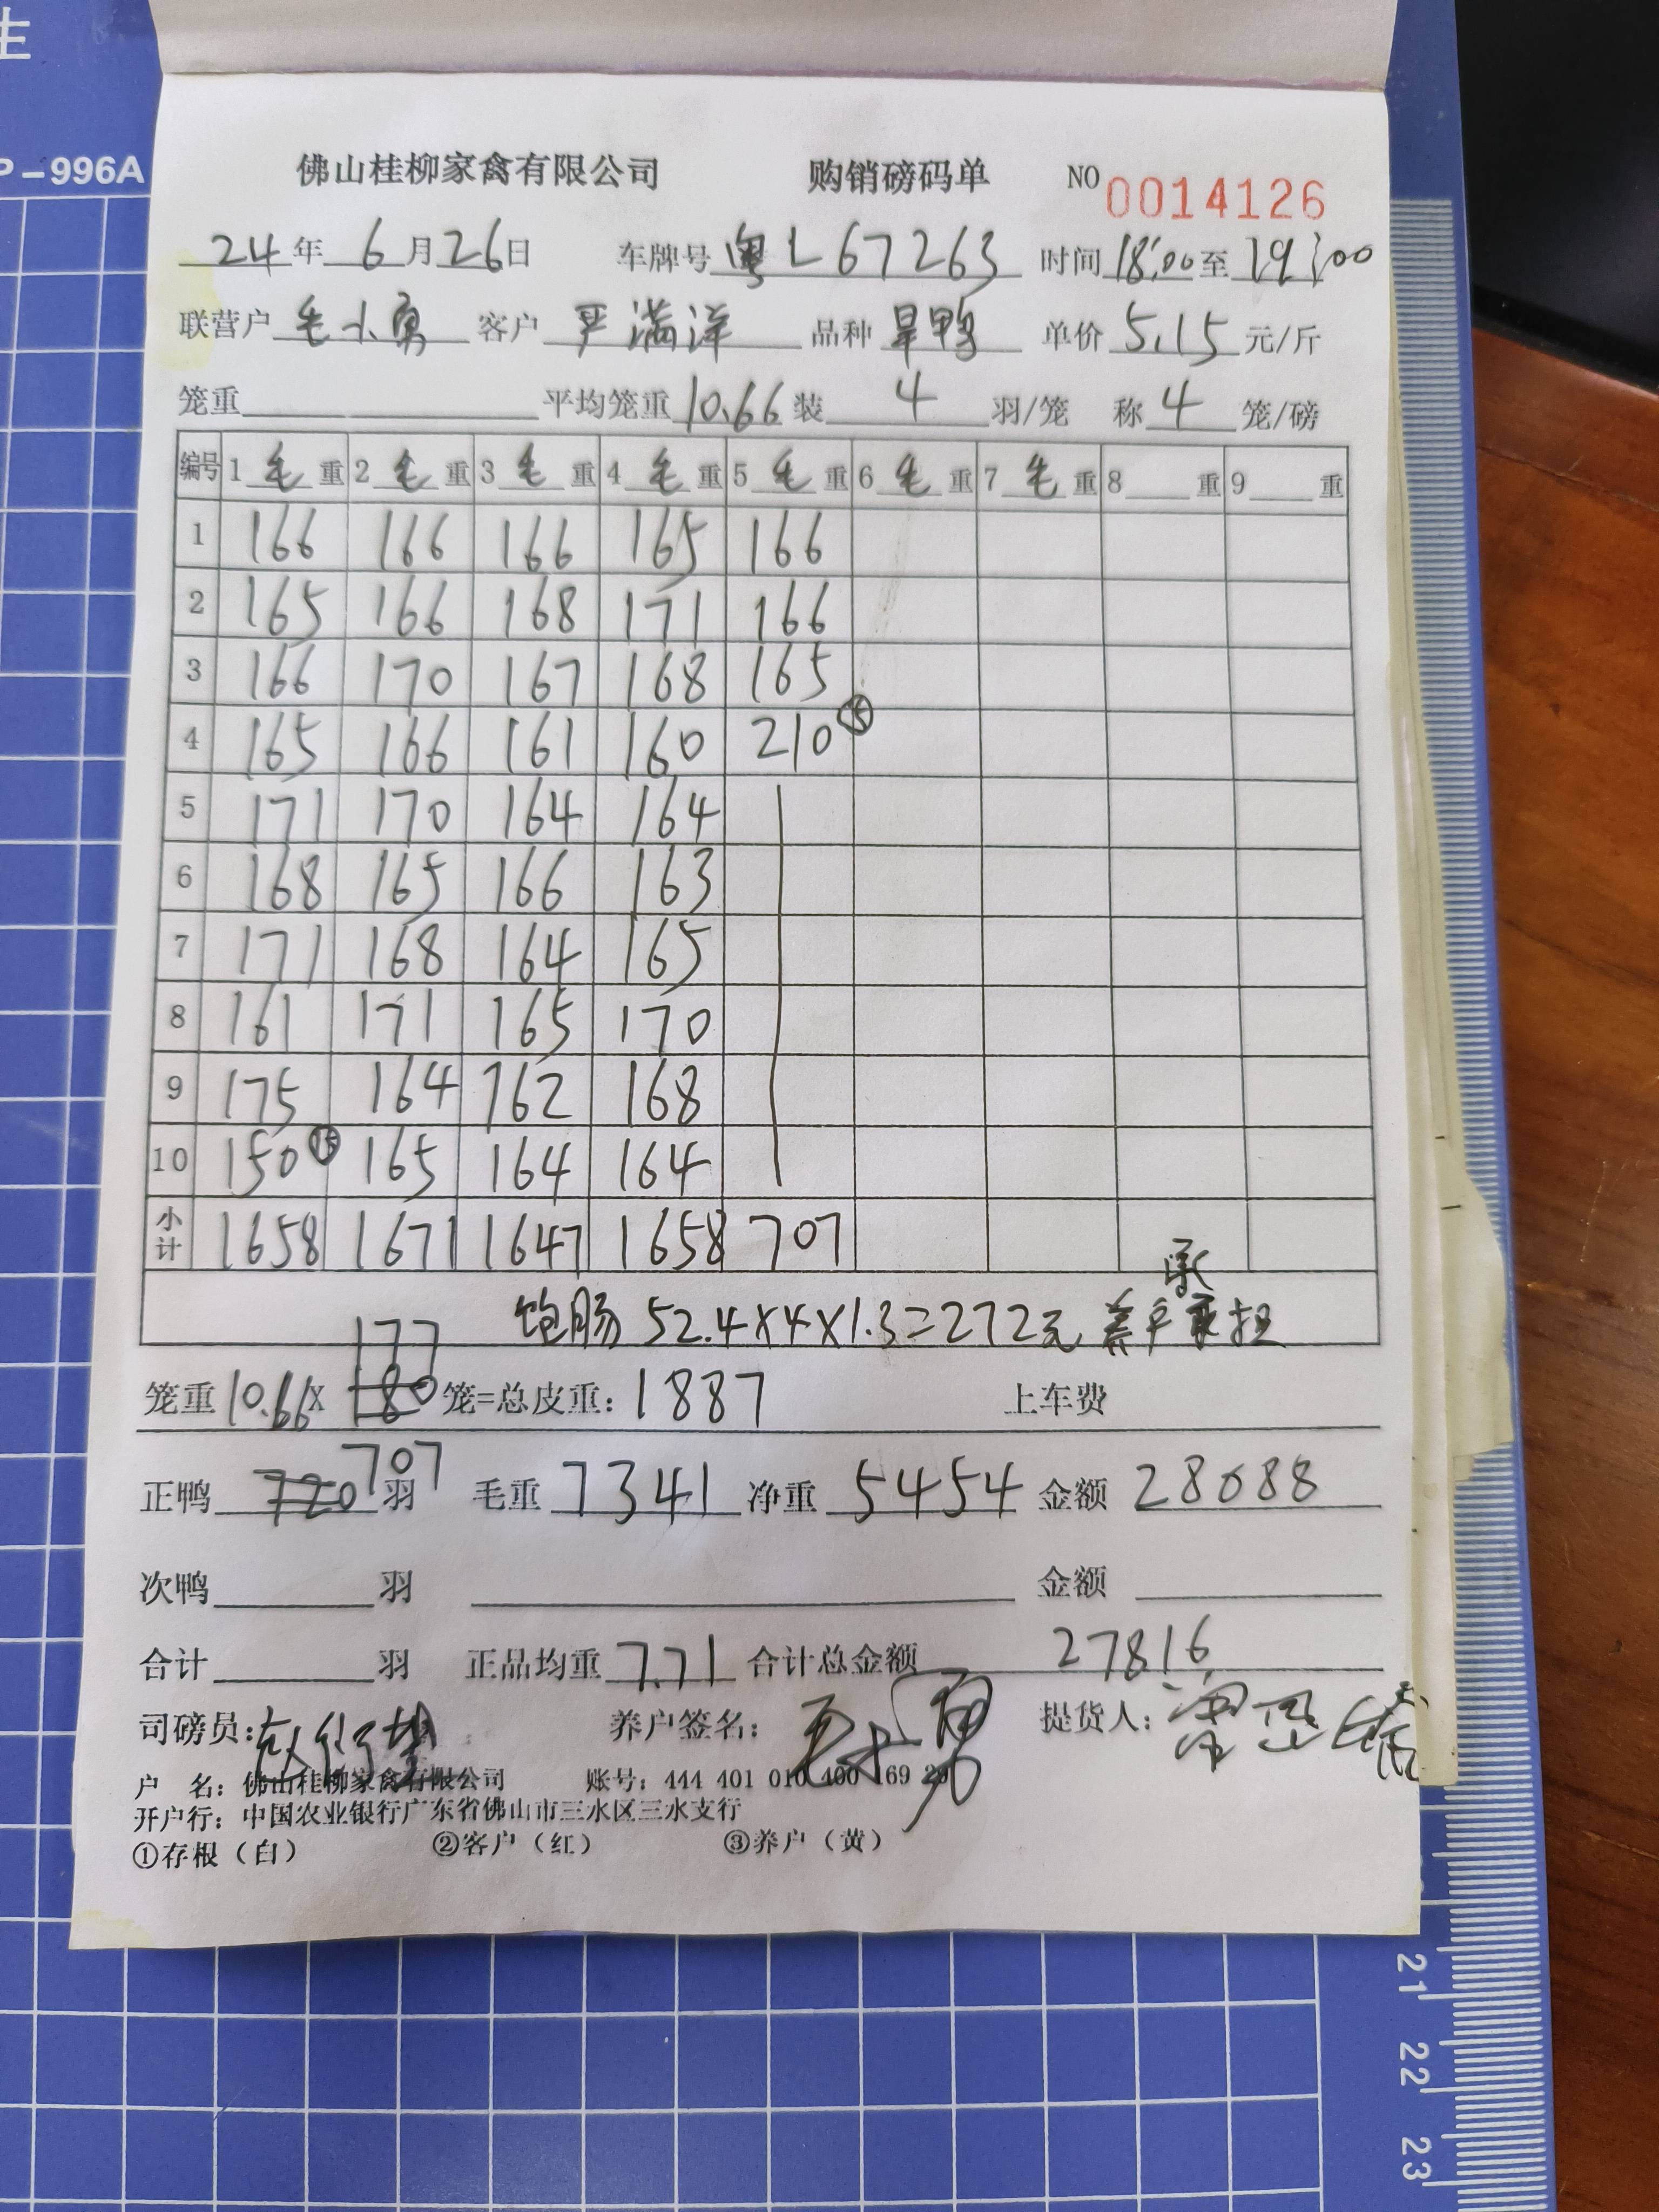 生
P-996A
佛山桂柳家禽有限公司 购销磅码单 NO 0014126
24年 6月26日 车牌号 粤L67263 时间18:00至19:00
联营户 毛小勇 客户 严满洋 品种 旱鸭 单价 5.15 元/斤
笼重 平均笼重 10.66 装 4 羽/笼 称 4 笼/磅
编号 1 毛 重 2 毛 重 3 毛 重 4 毛 重 5 毛 重 6 毛 重 7 毛 重 8 重 9 重
1 166 166 166 165 166
2 165 166 168 171 166
3 166 170 167 168 165
4 165 166 161 160 210
5 171 170 164 164
6 168 165 166 163
7 171 168 164 165
8 161 171 165 170
9 175 164 162 168
10 150 165 164 164
小计 1658 1671 1647 1658 707
承
饱肠 52.4×4×1.3=272元 养户承担
177
笼重10.66× 180 笼=总皮重: 1887 上车费
707
正鸭 720 羽 毛重 7341 净重 5454 金额 28088
次鸭 羽 金额
合计 羽 正品均重 7.71 合计总金额 27816
司磅员: 养户签名: 毛小勇 提货人:
户 名: 佛山桂柳家禽有限公司 账号: 444 401 010 400 169 29
开户行: 中国农业银行广东省佛山市三水区三水支行
①存根(白) ②客户(红) ③养户(黄)
21
22
23